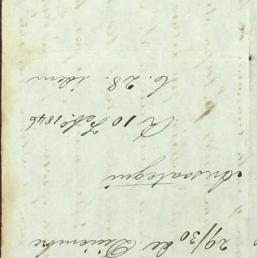 29/30 de Diciembre
Ansoategui
R 10 Feb. 1846
C. 28. idem